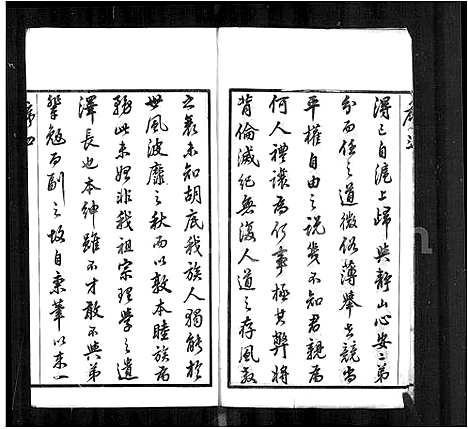 序三
得已自滬上歸與靜山心安二弟
分而任之道微俗薄舉世競尚
平權自由之說幾不知君親為
何人禮讓為何事極其弊將
背倫滅紀無復人道之存風教
之衰未知胡底我族人獨能於
世風波靡之秋而以敦本睦族為
務此未始非我祖宗理學之遺
澤長也本紳雖不才敢不與弟
輩勉而副之故自秉筆以來一
序四